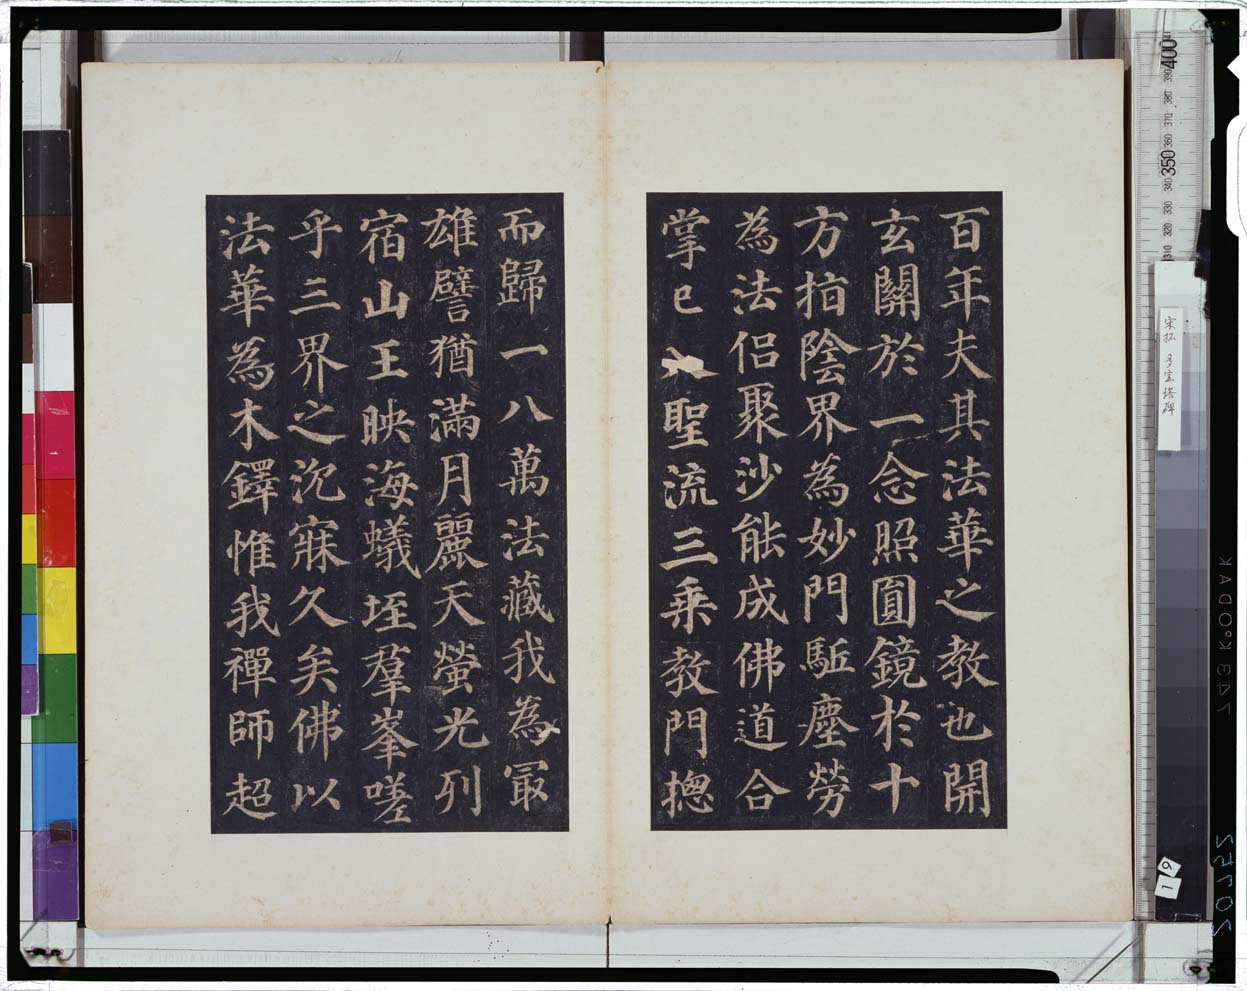 百年夫其法華之教也開
玄關於一念照圓鏡於十
方指陰界為妙門駈塵勞
為法侶聚沙能成佛道合
掌已入聖流三乘教門揔
而歸一八萬法藏我為冣
雄譬猶滿月麗天螢光列
宿山王映海蟻垤羣峯嗟
乎三界之沉寐久矣佛以
法華為木鐸惟我禪師超
宋拓 多宝塔碑
400 390 380 370 360 350 340 330 320 310
19
KODAK
20752